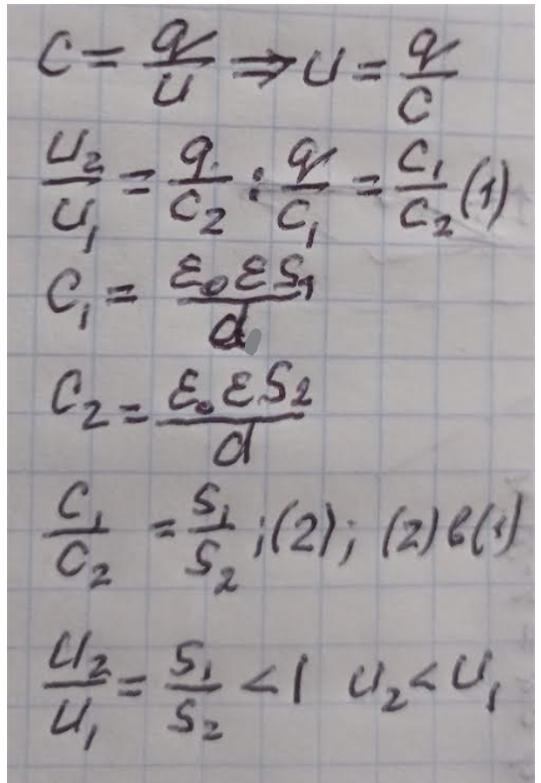 C = q/U ⇒ U = q/C
U₂/U₁ = q/C₂ : q/C₁ = C₁/C₂ (1)
C₁ = ε₀εS₁/d
C₂ = ε₀εS₂/d
C₁/C₂ = S₁/S₂ ; (2) ; (2) в (1)
U₂/U₁ = S₁/S₂ < 1 U₂ < U₁